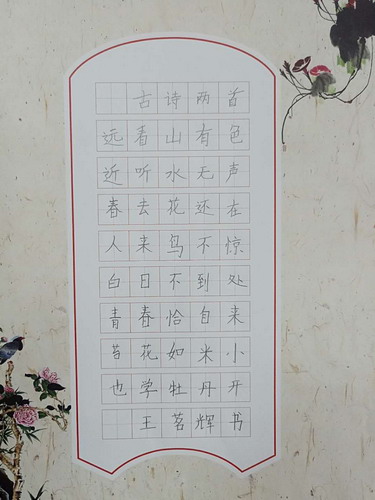 古诗两首
远看山有色
近听水无声
春去花还在
人来鸟不惊
白日不到处
青春恰自来
苔花如米小
也学牡丹开
王茗辉书